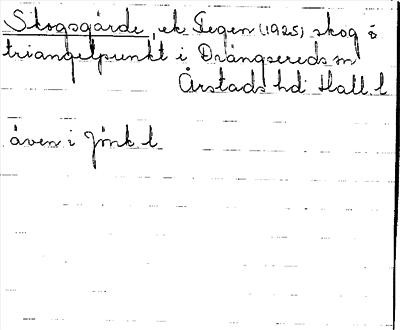 Skogsgärde, ek Segen (1925) skog ö
triangelpunkt i Drängsereds sn
Årstads hd Hall. l
även i Jönk l.